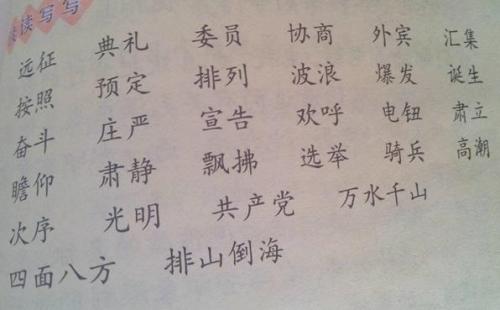 读读写写
远征 典礼 委员 协商 外宾 汇集
按照 预定 排列 波浪 爆发 诞生
奋斗 庄严 宣告 欢呼 电钮 肃立
瞻仰 肃静 飘拂 选举 骑兵 高潮
次序 光明 共产党 万水千山
四面八方 排山倒海